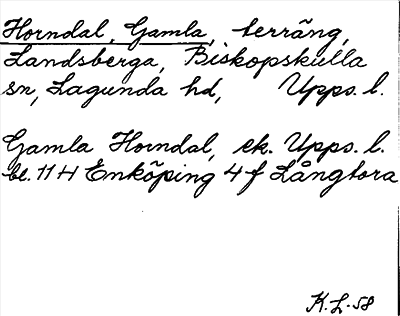 Horndal, Gamla, terräng,
Landsberga, Biskopskulla
sn, Lagunda hd, Upps. l.
Gamla Horndal, ek. Upps. l.
bl. 11 H Enköping 4 f Långtora
K.L. 58